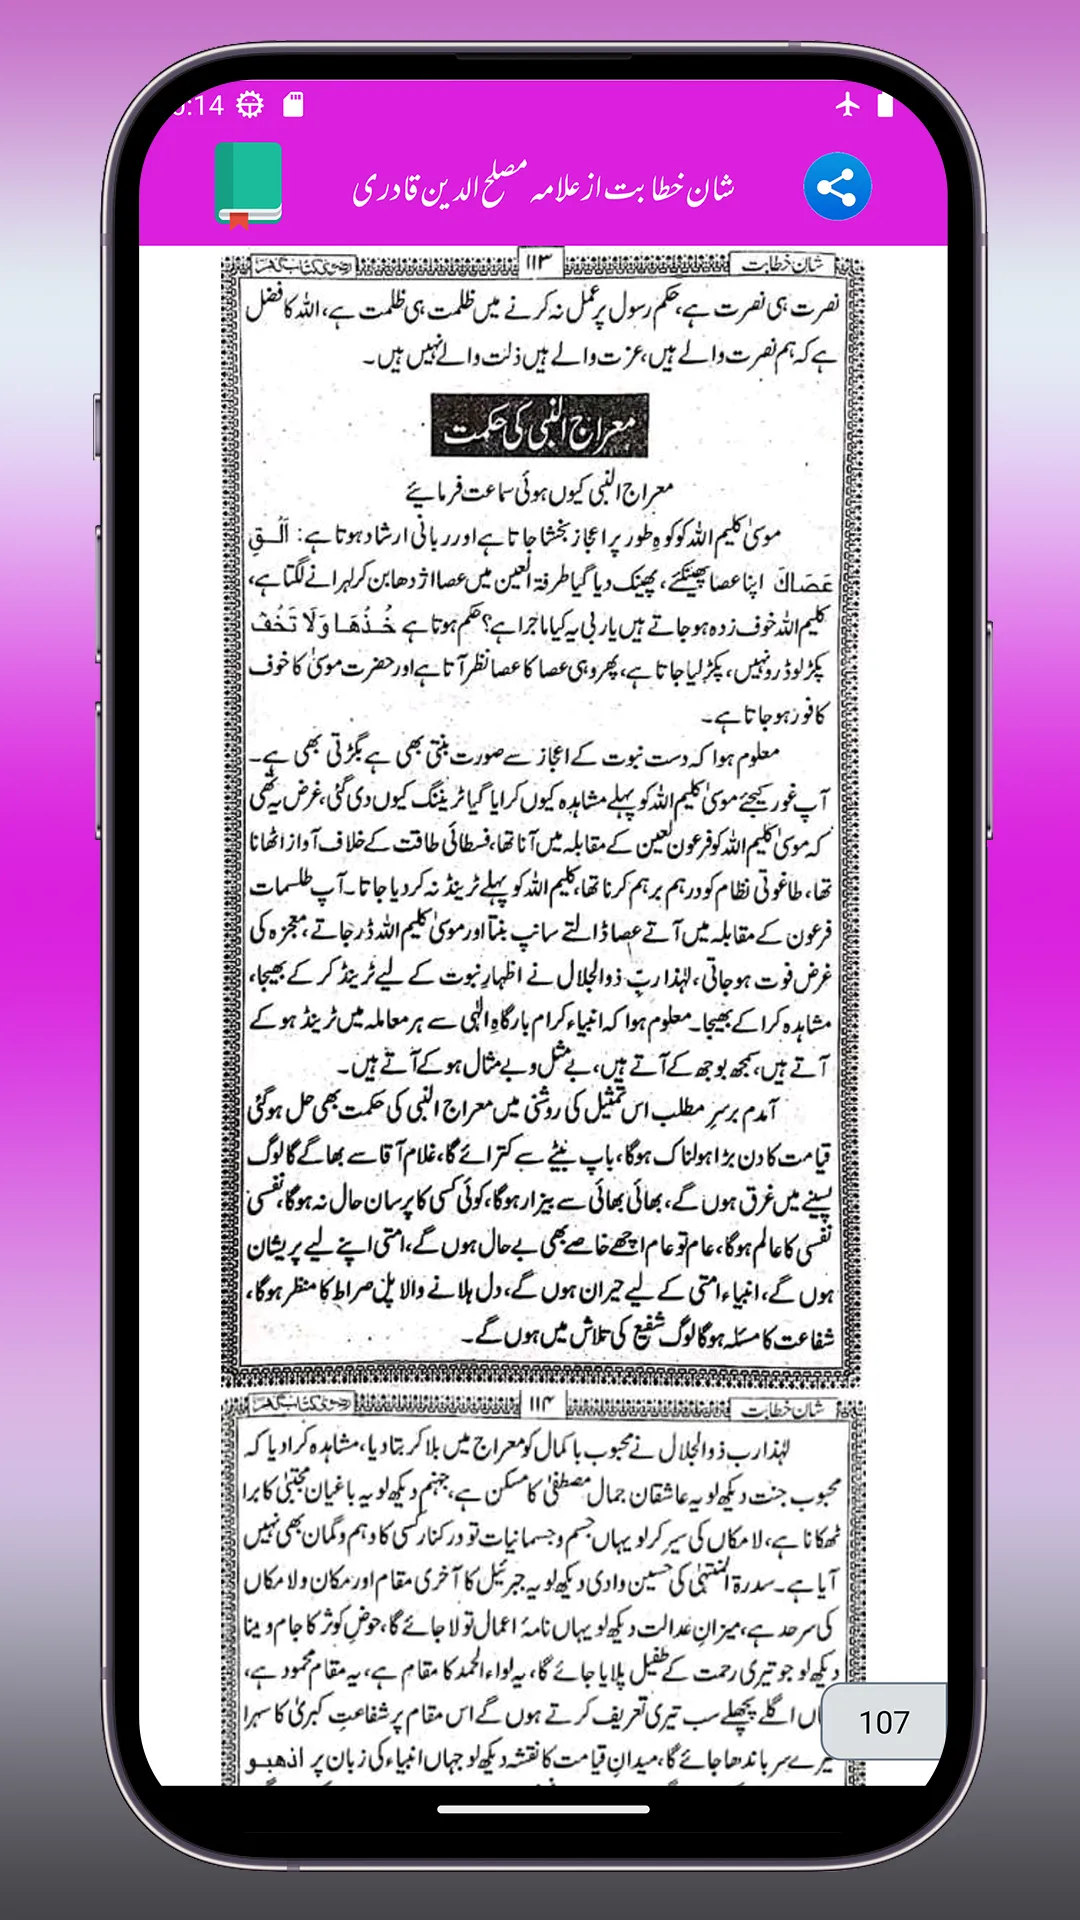 0:14
شان خطابت از علامہ مصلح الدین قادری
شان خطابت ۱۱۳ رضوی کتاب گھر
نصرت ہی نصرت ہے، حکم رسول پر عمل نہ کرنے میں ظلمت ہی ظلمت ہے، اللہ کا فضل
ہے کہ ہم نصرت والے ہیں، عزت والے ہیں ذلت والے نہیں ہیں۔
معراج النبی کی حکمت
معراج النبی کیوں ہوئی سماعت فرمایئے
موسیٰ کلیم اللہ کو کوہِ طور پر اعجاز بخشا جاتا ہے اور ربانی ارشاد ہوتا ہے: اَلْقِ
عَصَاكَ اپنا عصا پھینکئے، پھینک دیا گیا طرفۃ العین میں عصا اژدھا بن کر لہرانے لگتا ہے،
کلیم اللہ خوف زدہ ہو جاتے ہیں یا ربی یہ کیا ماجرا ہے؟ حکم ہوتا ہے خُذْهَا وَلَا تَخَفْ
پکڑ لو ڈرو نہیں، پکڑ لیا جاتا ہے، پھر وہی عصا کا عصا نظر آتا ہے اور حضرت موسیٰ کا خوف
کافور ہو جاتا ہے۔
معلوم ہوا کہ دست نبوت کے اعجاز سے صورت بنتی بھی ہے بگڑتی بھی ہے۔
آپ غور کیجئے موسیٰ کلیم اللہ کو پہلے مشاہدہ کیوں کرایا گیا ٹریننگ کیوں دی گئی، غرض یہ تھی
کہ موسیٰ کلیم اللہ کو فرعون لعین کے مقابلہ میں آنا تھا، فسطائی طاقت کے خلاف آواز اٹھانا
تھا، طاغوتی نظام کو درہم برہم کرنا تھا، کلیم اللہ کو پہلے ٹرینڈ نہ کر دیا جاتا۔ آپ طلسمات
فرعون کے مقابلہ میں آتے عصا ڈالتے سانپ بنتا اور موسیٰ کلیم اللہ ڈر جاتے، معجزہ کی
غرض فوت ہو جاتی، لہٰذا ربِّ ذوالجلال نے اظہارِ نبوت کے لیے ٹرینڈ کر کے بھیجا،
مشاہدہ کرا کے بھیجا۔ معلوم ہوا کہ انبیاء کرام بارگاہِ الٰہی سے ہر معاملہ میں ٹرینڈ ہو کے
آتے ہیں، سمجھ بوجھ کے آتے ہیں، بے مثل و بے مثال ہو کے آتے ہیں۔
آمدم برسرِ مطلب اس تمثیل کی روشنی میں معراج النبی کی حکمت بھی حل ہو گئی
قیامت کا دن بڑا ہولناک ہوگا، باپ بیٹے سے کترائے گا، غلام آقا سے بھاگے گا لوگ
پسینے میں غرق ہوں گے، بھائی بھائی سے بیزار ہوگا، کوئی کسی کا پرسان حال نہ ہوگا، نفسی
نفسی کا عالم ہوگا، عام تو عام اچھے خاصے بھی بے حال ہوں گے، امتی اپنے لیے پریشان
ہوں گے، انبیاء امتی کے لیے حیران ہوں گے، دل ہلانے والا پل صراط کا منظر ہوگا،
شفاعت کا مسئلہ ہوگا لوگ شفیع کی تلاش میں ہوں گے۔
شان خطابت ۱۱۴ رضوی کتاب گھر
لہٰذا رب ذوالجلال نے محبوب باکمال کو معراج میں بلا کر بتا دیا، مشاہدہ کرا دیا کہ
محبوب جنت دیکھ لو یہ عاشقان جمال مصطفیٰ کا مسکن ہے، جہنم دیکھ لو یہ باغیان مجتبیٰ کا برا
ٹھکانا ہے، لا مکاں کی سیر کر لو یہاں جسم و جسمانیات تو درکنار کسی کا وہم و گمان بھی نہیں
آیا ہے۔ سدرۃ المنتہیٰ کی حسین وادی دیکھ لو یہ جبرئیل کا آخری مقام اور مکان و لامکاں
کی سرحد ہے، میزانِ عدالت دیکھ لو یہاں نامۂ اعمال تولا جائے گا، حوضِ کوثر کا جام و مینا
دیکھ لو جو تیری رحمت کے طفیل پلایا جائے گا، یہ لواء الحمد کا مقام ہے، یہ مقام محمود ہے،
اگلے پچھلے سب تیری تعریف کرتے ہوں گے اس مقام پر شفاعتِ کبریٰ کا سہرا
سر باندھا جائے گا، میدانِ قیامت کا نقشہ دیکھ لو جہاں انبیاء کی زبان پر اذهبو
107